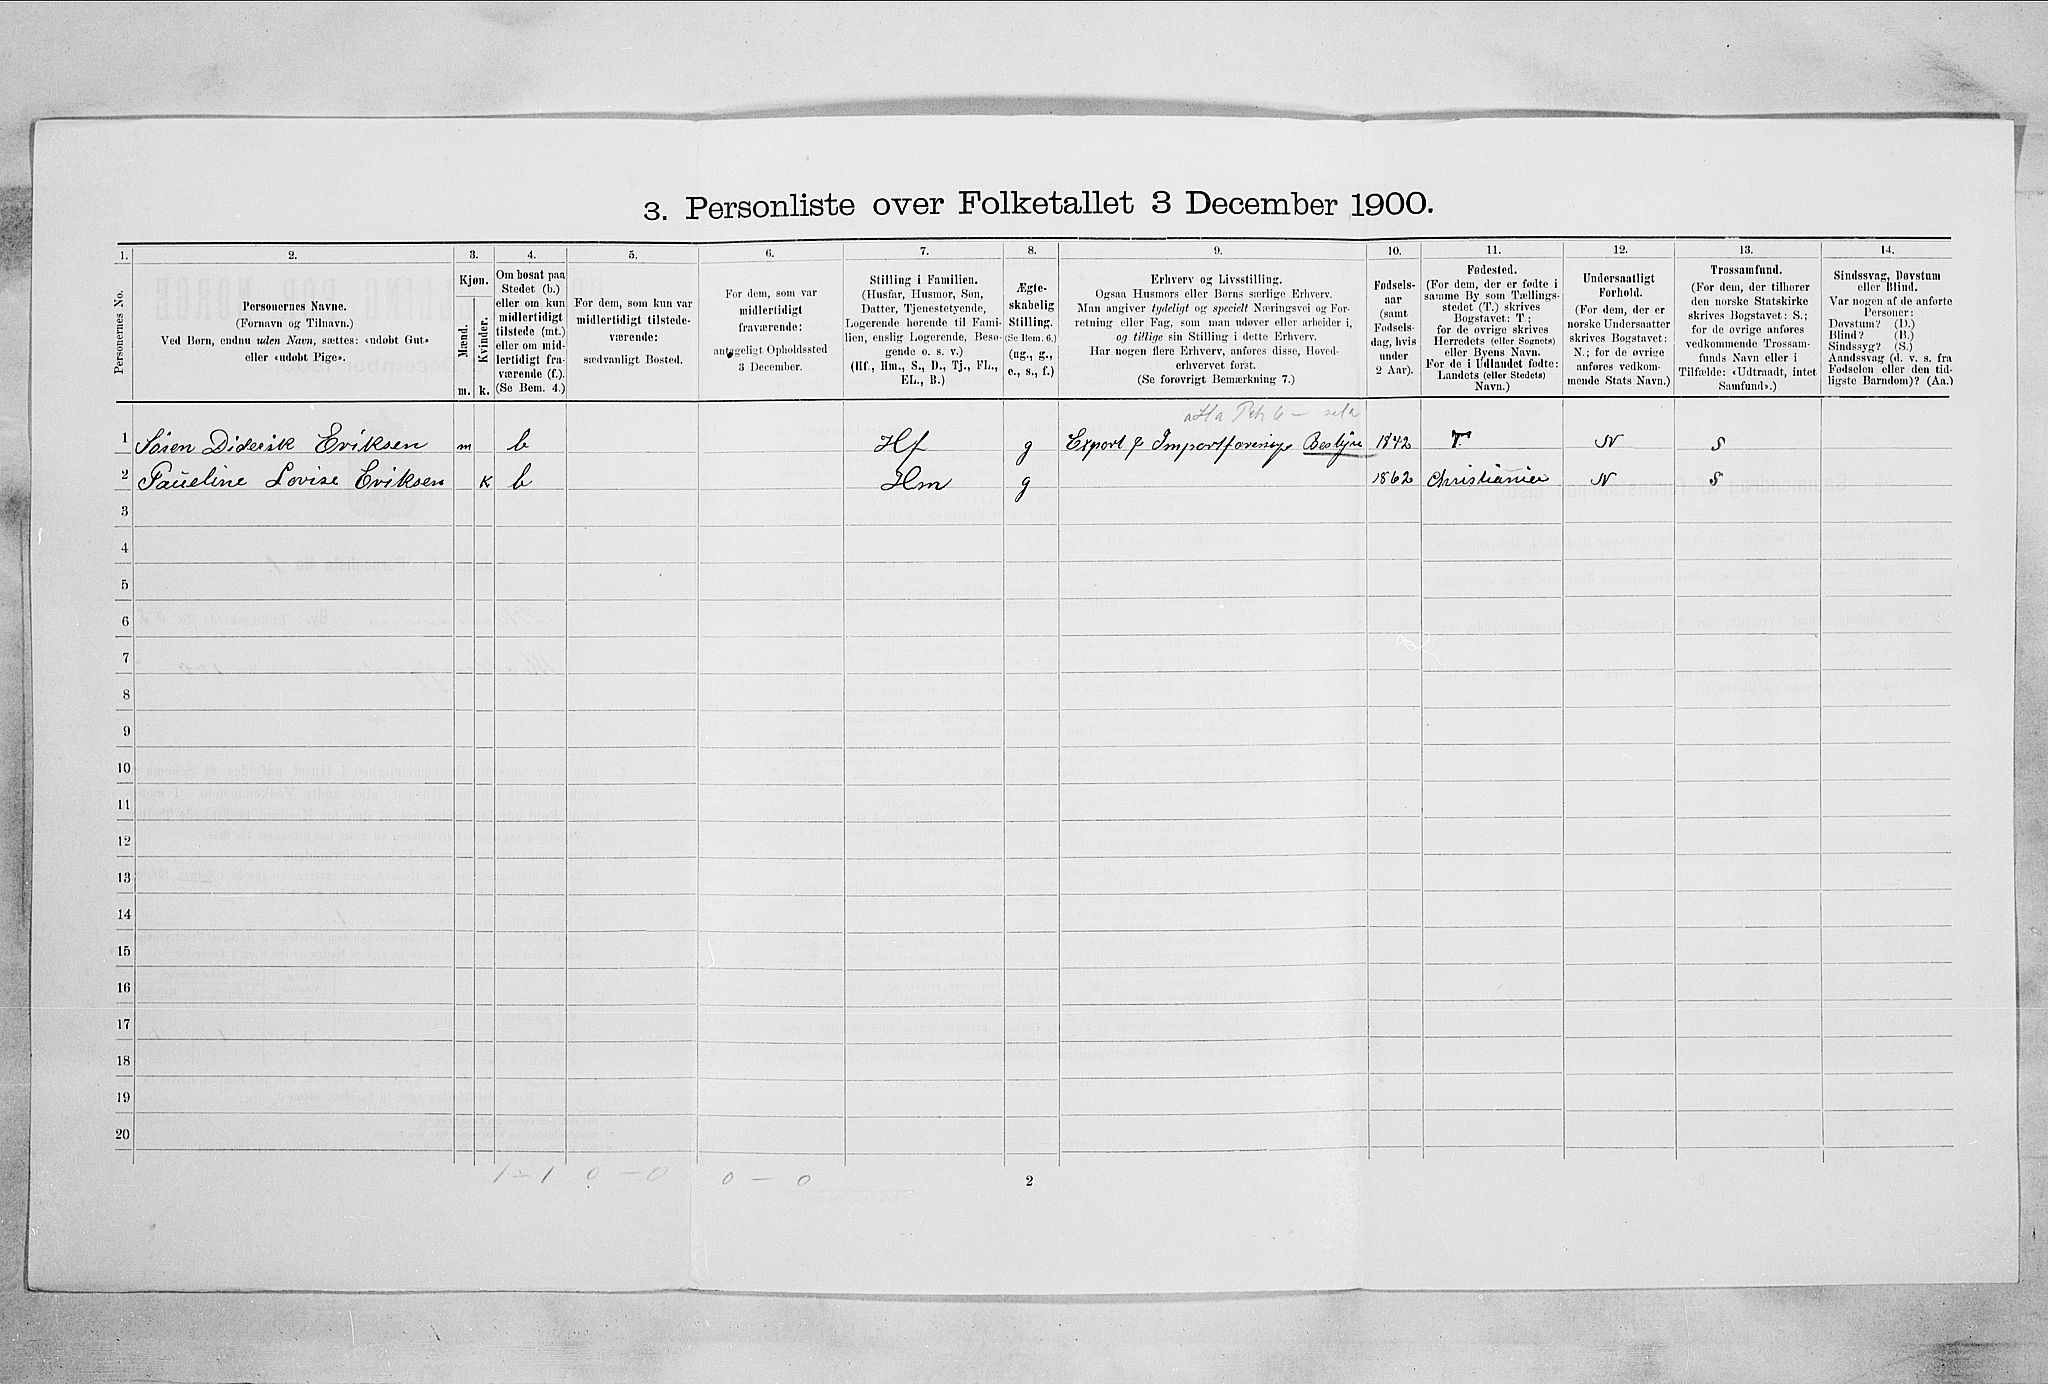 3. Personliste over Folketallet 3 December 1900.
1. 2. 3. 4. 5. 6. 7. 8. 9. 10. 11. 12. 13. 14.
Personernes No.
Personernes Navne.
(Fornavn og Tilnavn.)
Ved Børn, endnu uden Navn, sættes: «udøbt Gut»
eller «udøbt Pige».
Kjøn.
Mænd.
Kvinder.
m. k.
Om bosat paa
Stedet (b.)
eller om kun
midlertidigt
tilstede (mt.)
eller om mid-
lertidigt fra-
værende (f.).
(Se Bem. 4.)
For dem, som kun var
midlertidigt tilstede-
værende:
sædvanligt Bosted.
For dem, som var
midlertidigt
fraværende:
antageligt Opholdssted
3 December.
Stilling i Familien.
(Husfar, Husmor, Søn,
Datter, Tjenestetyende,
Logerende hørende til Fami-
lien, enslig Logerende, Besø-
gende o. s. v.)
(Hf., Hm., S., D., Tj., FL.,
EL., B.)
Ægte-
skabelig
Stilling.
(Se Bem. 6.)
(ug., g.,
e., s., f.)
Erhverv og Livsstilling.
Ogsaa Husmors eller Børns særlige Erhverv.
Man angiver tydeligt og specielt Næringsvei og For-
retning eller Fag, som man udøver eller arbeider i,
og tillige sin Stilling i dette Erhverv.
Har nogen flere Erhverv, anføres disse, Hoved-
erhvervet først.
(Se forøvrigt Bemærkning 7.)
Fødsels-
aar
(samt
Fødsels-
dag, hvis
under
2 Aar).
Fødested.
(For dem, der er fødte i
samme By som Tællings-
stedet (T.) skrives
Bogstavet: T.;
for de øvrige skrives
Herredets (eller Sognets)
eller Byens Navn.
For de i Udlandet fødte:
Landets (eller Stedets)
Navn.)
Undersaatligt
Forhold.
(For dem, der er
norske Undersaatter
skrives Bogstavet:
N.; for de øvrige
anføres vedkom-
mende Stats Navn.)
Trossamfund.
(For dem, der tilhører
den norske Statskirke
skrives Bogstavet: S.;
for de øvrige anføres
vedkommende Trossam-
funds Navn eller i
Tilfælde: «Udtraadt, intet
Samfund».)
Sindssvag, Døvstum
eller Blind.
Var nogen af de anførte
Personer:
Døvstum? (D.)
Blind? (B.)
Sindssyg? (S.)
Aandssvag (d. v. s. fra
Fødselen eller den tid-
ligste Barndom)? (Aa.)
1 Søren Diderik Eriksen m b Hf g Export & Importforenings Bestyre 1842 T. N S
2 Paueline Lovise Eriksen k b Hm g 1862 Christiania N S
3
4
5
6
7
8
9
10
11
12
13
14
15
16
17
18
19
20
1 - 1 0 - 0 0 - 0
2